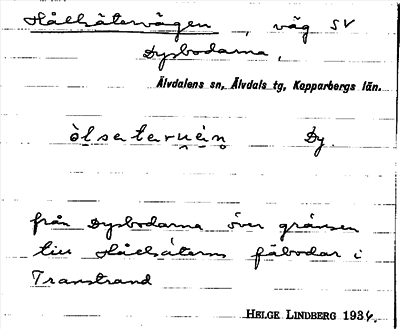 Hållsätervägen, väg SV
Dysbodarna,
Älvdalens sn, Älvdals tg, Kopparbergs län.
òlsateruèn̥ Dy.
från Dysbodarna över gränsen
till Hållsäterns fäbodar i
Transtrand
HELGE LINDBERG 1934.